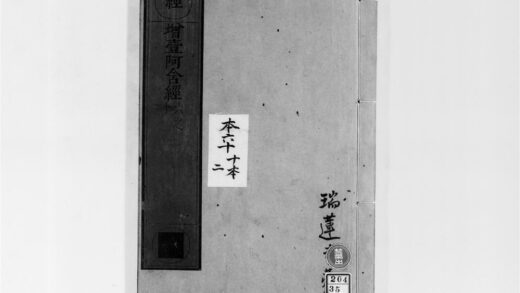 經
增壹阿含經
本六十
十本
二
瑞蓮
204
35